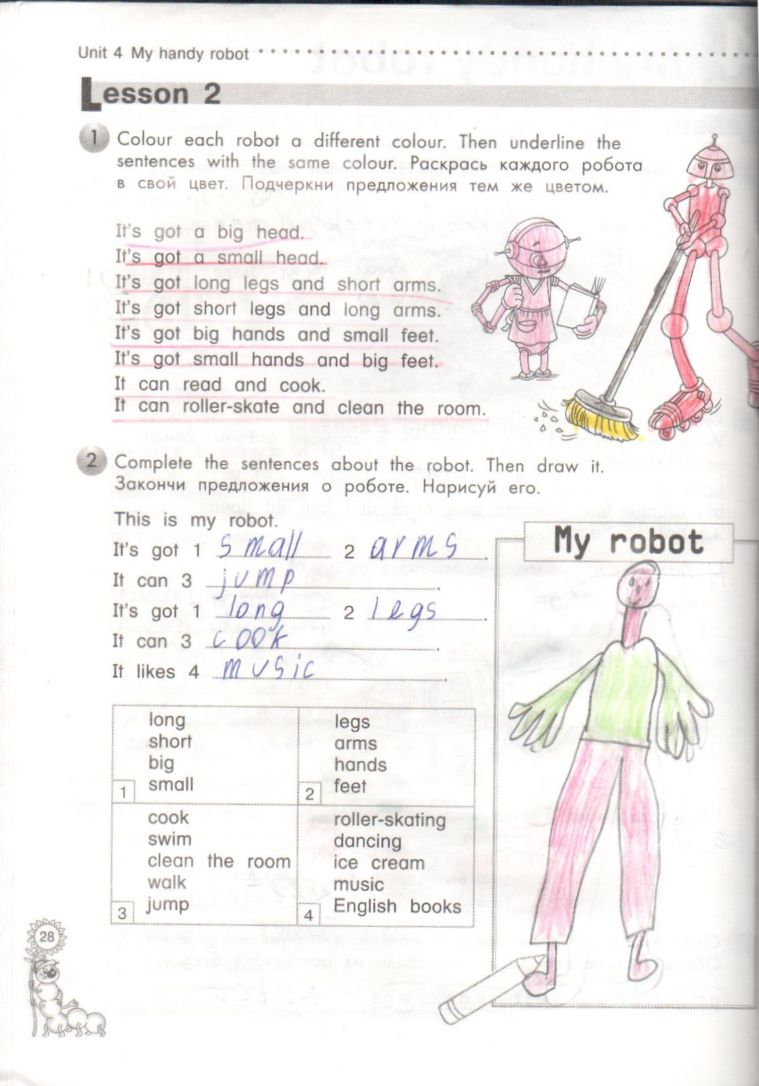 Unit 4 My handy robot
Lesson 2
1 Colour each robot a different colour. Then underline the
sentences with the same colour. Раскрась каждого робота
в свой цвет. Подчеркни предложения тем же цветом.
It's got a big head.
It's got a small head.
It's got long legs and short arms.
It's got short legs and long arms.
It's got big hands and small feet.
It's got small hands and big feet.
It can read and cook.
It can roller-skate and clean the room.
2 Complete the sentences about the robot. Then draw it.
Закончи предложения о роботе. Нарисуй его.
This is my robot.
It's got 1 small 2 arms.
It can 3 jump.
It's got 1 long 2 legs.
It can 3 cook.
It likes 4 music.
My robot
long
short
big
1 small
legs
arms
hands
2 feet
cook
swim
clean the room
walk
3 jump
roller-skating
dancing
ice cream
music
4 English books
28